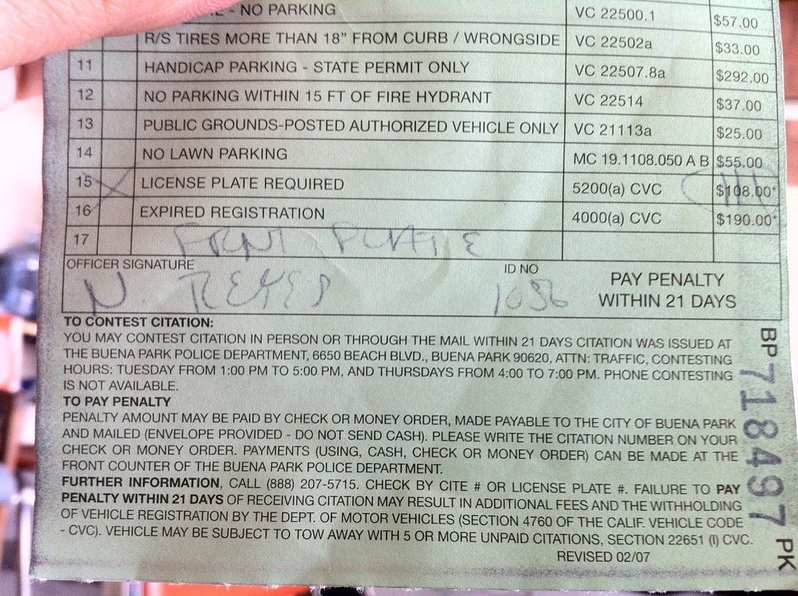 - NO PARKING VC 22500.1 $57.00
R/S TIRES MORE THAN 18" FROM CURB / WRONGSIDE VC 22502a $33.00
11 HANDICAP PARKING - STATE PERMIT ONLY VC 22507.8a $292.00
12 NO PARKING WITHIN 15 FT OF FIRE HYDRANT VC 22514 $37.00
13 PUBLIC GROUNDS-POSTED AUTHORIZED VEHICLE ONLY VC 21113a $25.00
14 NO LAWN PARKING MC 19.1108.050 A B $55.00
15 X LICENSE PLATE REQUIRED 5200(a) CVC $108.00*
16 EXPIRED REGISTRATION 4000(a) CVC $190.00*
17 FRNT PLATE
OFFICER SIGNATURE ID NO PAY PENALTY
N. REYES 1056 WITHIN 21 DAYS
TO CONTEST CITATION:
YOU MAY CONTEST CITATION IN PERSON OR THROUGH THE MAIL WITHIN 21 DAYS CITATION WAS ISSUED AT
THE BUENA PARK POLICE DEPARTMENT, 6650 BEACH BLVD., BUENA PARK 90620, ATTN: TRAFFIC, CONTESTING
HOURS: TUESDAY FROM 1:00 PM TO 5:00 PM, AND THURSDAYS FROM 4:00 TO 7:00 PM. PHONE CONTESTING
IS NOT AVAILABLE.
TO PAY PENALTY
PENALTY AMOUNT MAY BE PAID BY CHECK OR MONEY ORDER, MADE PAYABLE TO THE CITY OF BUENA PARK
AND MAILED (ENVELOPE PROVIDED - DO NOT SEND CASH). PLEASE WRITE THE CITATION NUMBER ON YOUR
CHECK OR MONEY ORDER. PAYMENTS (USING, CASH, CHECK OR MONEY ORDER) CAN BE MADE AT THE
FRONT COUNTER OF THE BUENA PARK POLICE DEPARTMENT.
FURTHER INFORMATION, CALL (888) 207-5715. CHECK BY CITE # OR LICENSE PLATE #. FAILURE TO PAY
PENALTY WITHIN 21 DAYS OF RECEIVING CITATION MAY RESULT IN ADDITIONAL FEES AND THE WITHHOLDING
OF VEHICLE REGISTRATION BY THE DEPT. OF MOTOR VEHICLES (SECTION 4760 OF THE CALIF. VEHICLE CODE
- CVC). VEHICLE MAY BE SUBJECT TO TOW AWAY WITH 5 OR MORE UNPAID CITATIONS, SECTION 22651 (I) CVC.
REVISED 02/07
BP 718497 PK